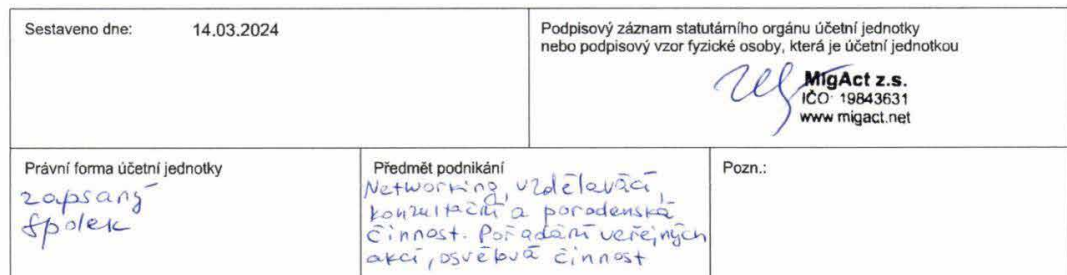 Sestaveno dne: 14.03.2024
Podpisový záznam statutárního orgánu účetní jednotky
nebo podpisový vzor fyzické osoby, která je účetní jednotkou
MigAct z.s.
IČO: 19843631
www migact.net
Právní forma účetní jednotky
zapsaný
spolek
Předmět podnikání
Networking, vzdělávací,
konzultační a poradenská
činnost. Pořádání veřejných
akcí, osvětová činnost
Pozn.: